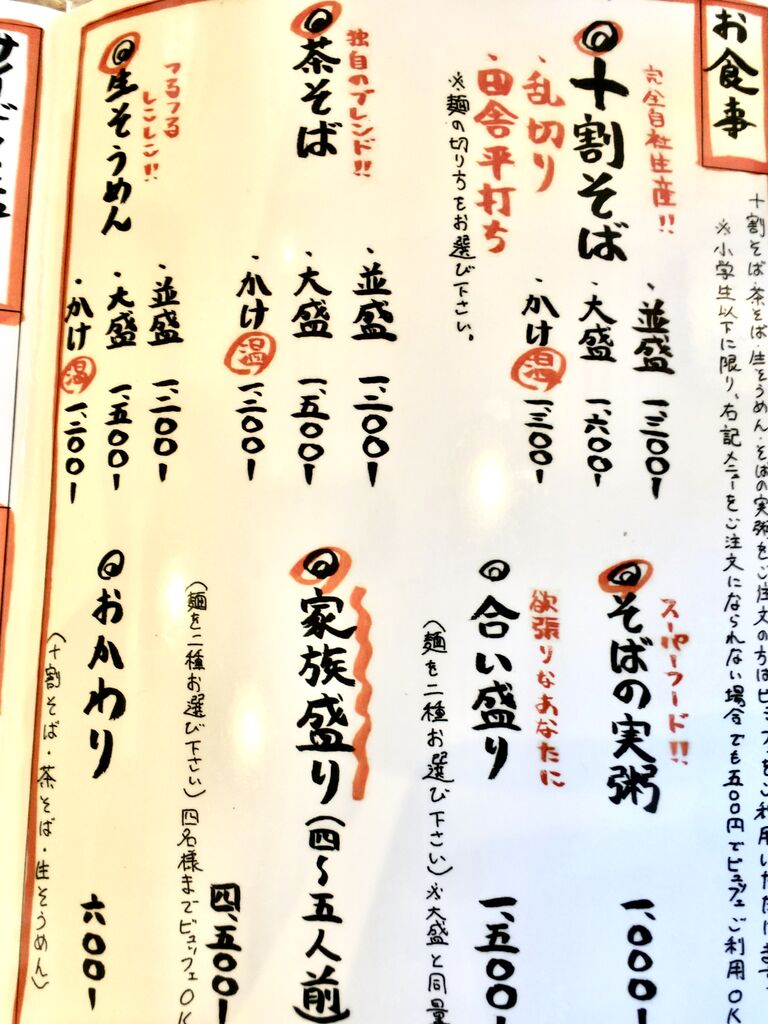 お食事
十割そば・茶そば・生そうめん・そばの実粥をご注文の方はビュッフェをご利用いただけます。
※小学生以下に限り、右記メニューをご注文になられない場合でも五〇〇円でビュッフェご利用OK
完全自社生産!!
十割そば
・乱切り
・田舎平打ち
※麺の切り方をお選び下さい。
・並盛 一、三〇〇-
・大盛 一、六〇〇-
・かけ 温 一、三〇〇-
独自のブレンド!!
茶そば
・並盛 一、二〇〇-
・大盛 一、五〇〇-
・かけ 温 一、二〇〇-
つるつる
しこしこ!!
生そうめん
・並盛 一、二〇〇-
・大盛 一、五〇〇-
・かけ 温 一、二〇〇-
スーパーフード!!
そばの実粥 一、〇〇〇-
欲張りなあなたに
合い盛り 一、五〇〇-
(麺を二種お選び下さい)※大盛と同量
家族盛り(四~五人前)
四、五〇〇-
(麺を二種お選び下さい)四名様までビュッフェOK
おかわり 六〇〇-
(十割そば・茶そば・生そうめん)